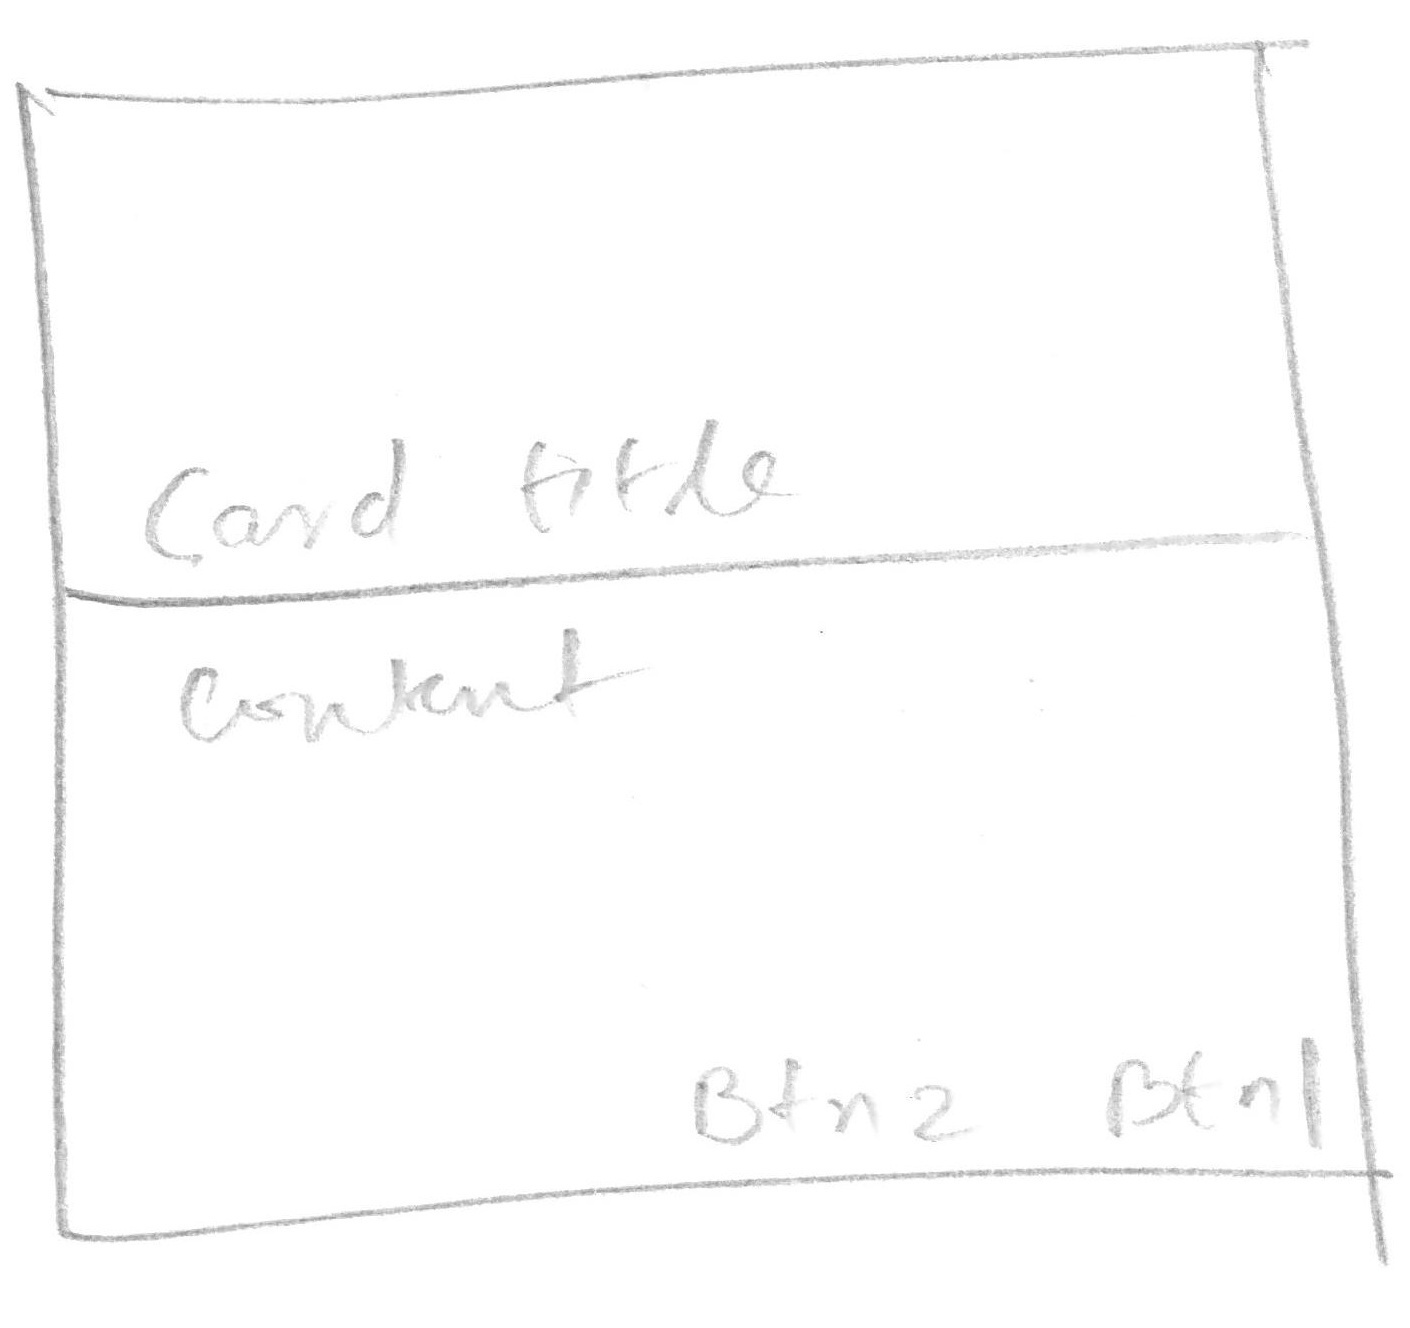 Card title
Content
Btn2 Btn1